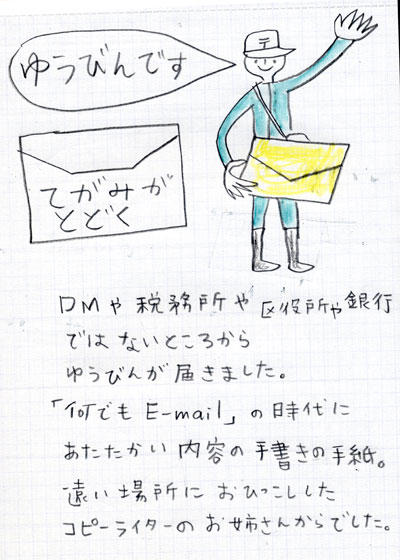 ゆうびんです
〒
てがみが
とどく
DMや税務所や区役所や銀行
ではないところから
ゆうびんが届きました。
「何でもE-mail」の時代に
あたたかい内容の手書きの手紙。
遠い場所におひっこしした
コピーライターのお姉さんからでした。